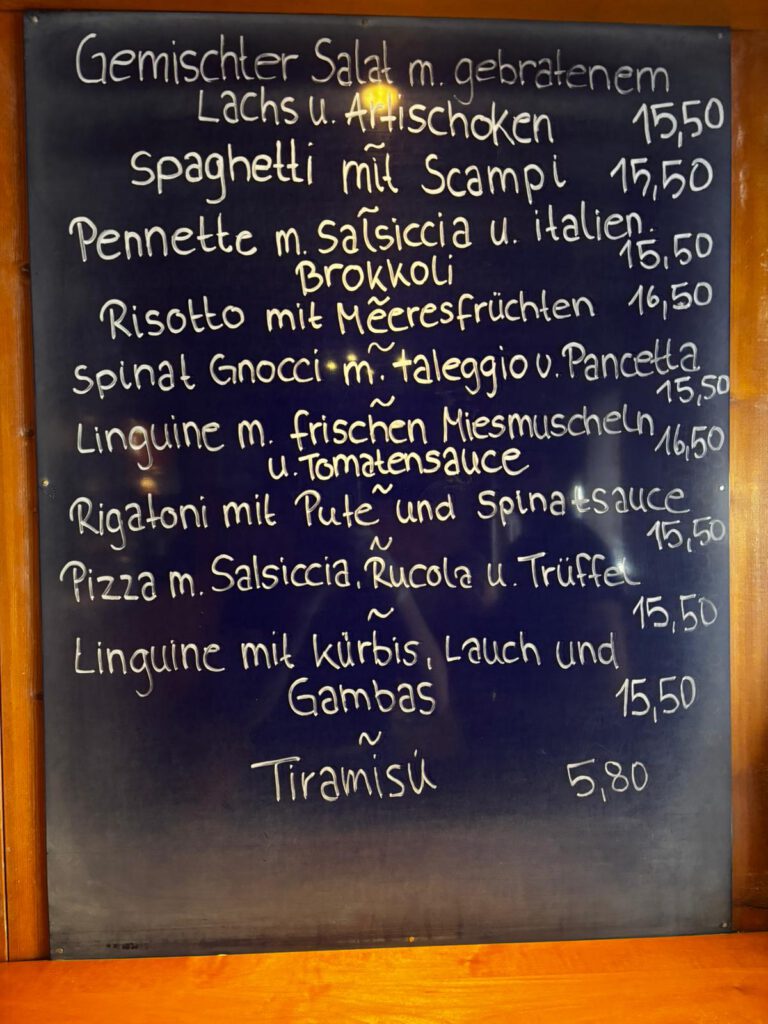 Gemischter Salat m. gebratenem
Lachs u. Artischoken 15,50
Spaghetti mit Scampi 15,50
~
Pennette m. Salsiccia u. italien.
Brokkoli 15,50
Risotto mit Meeresfrüchten 16,50
~
Spinat Gnocci m. taleggio u. Pancetta
15,50
~
Linguine m. frischen Miesmuscheln
u. Tomatensauce 16,50
~
Rigatoni mit Pute und Spinatsauce
15,50
~
Pizza m. Salsiccia, Rucola u. Trüffel
15,50
~
Linguine mit kürbis, Lauch und
Gambas 15,50
~
Tiramisú 5,80